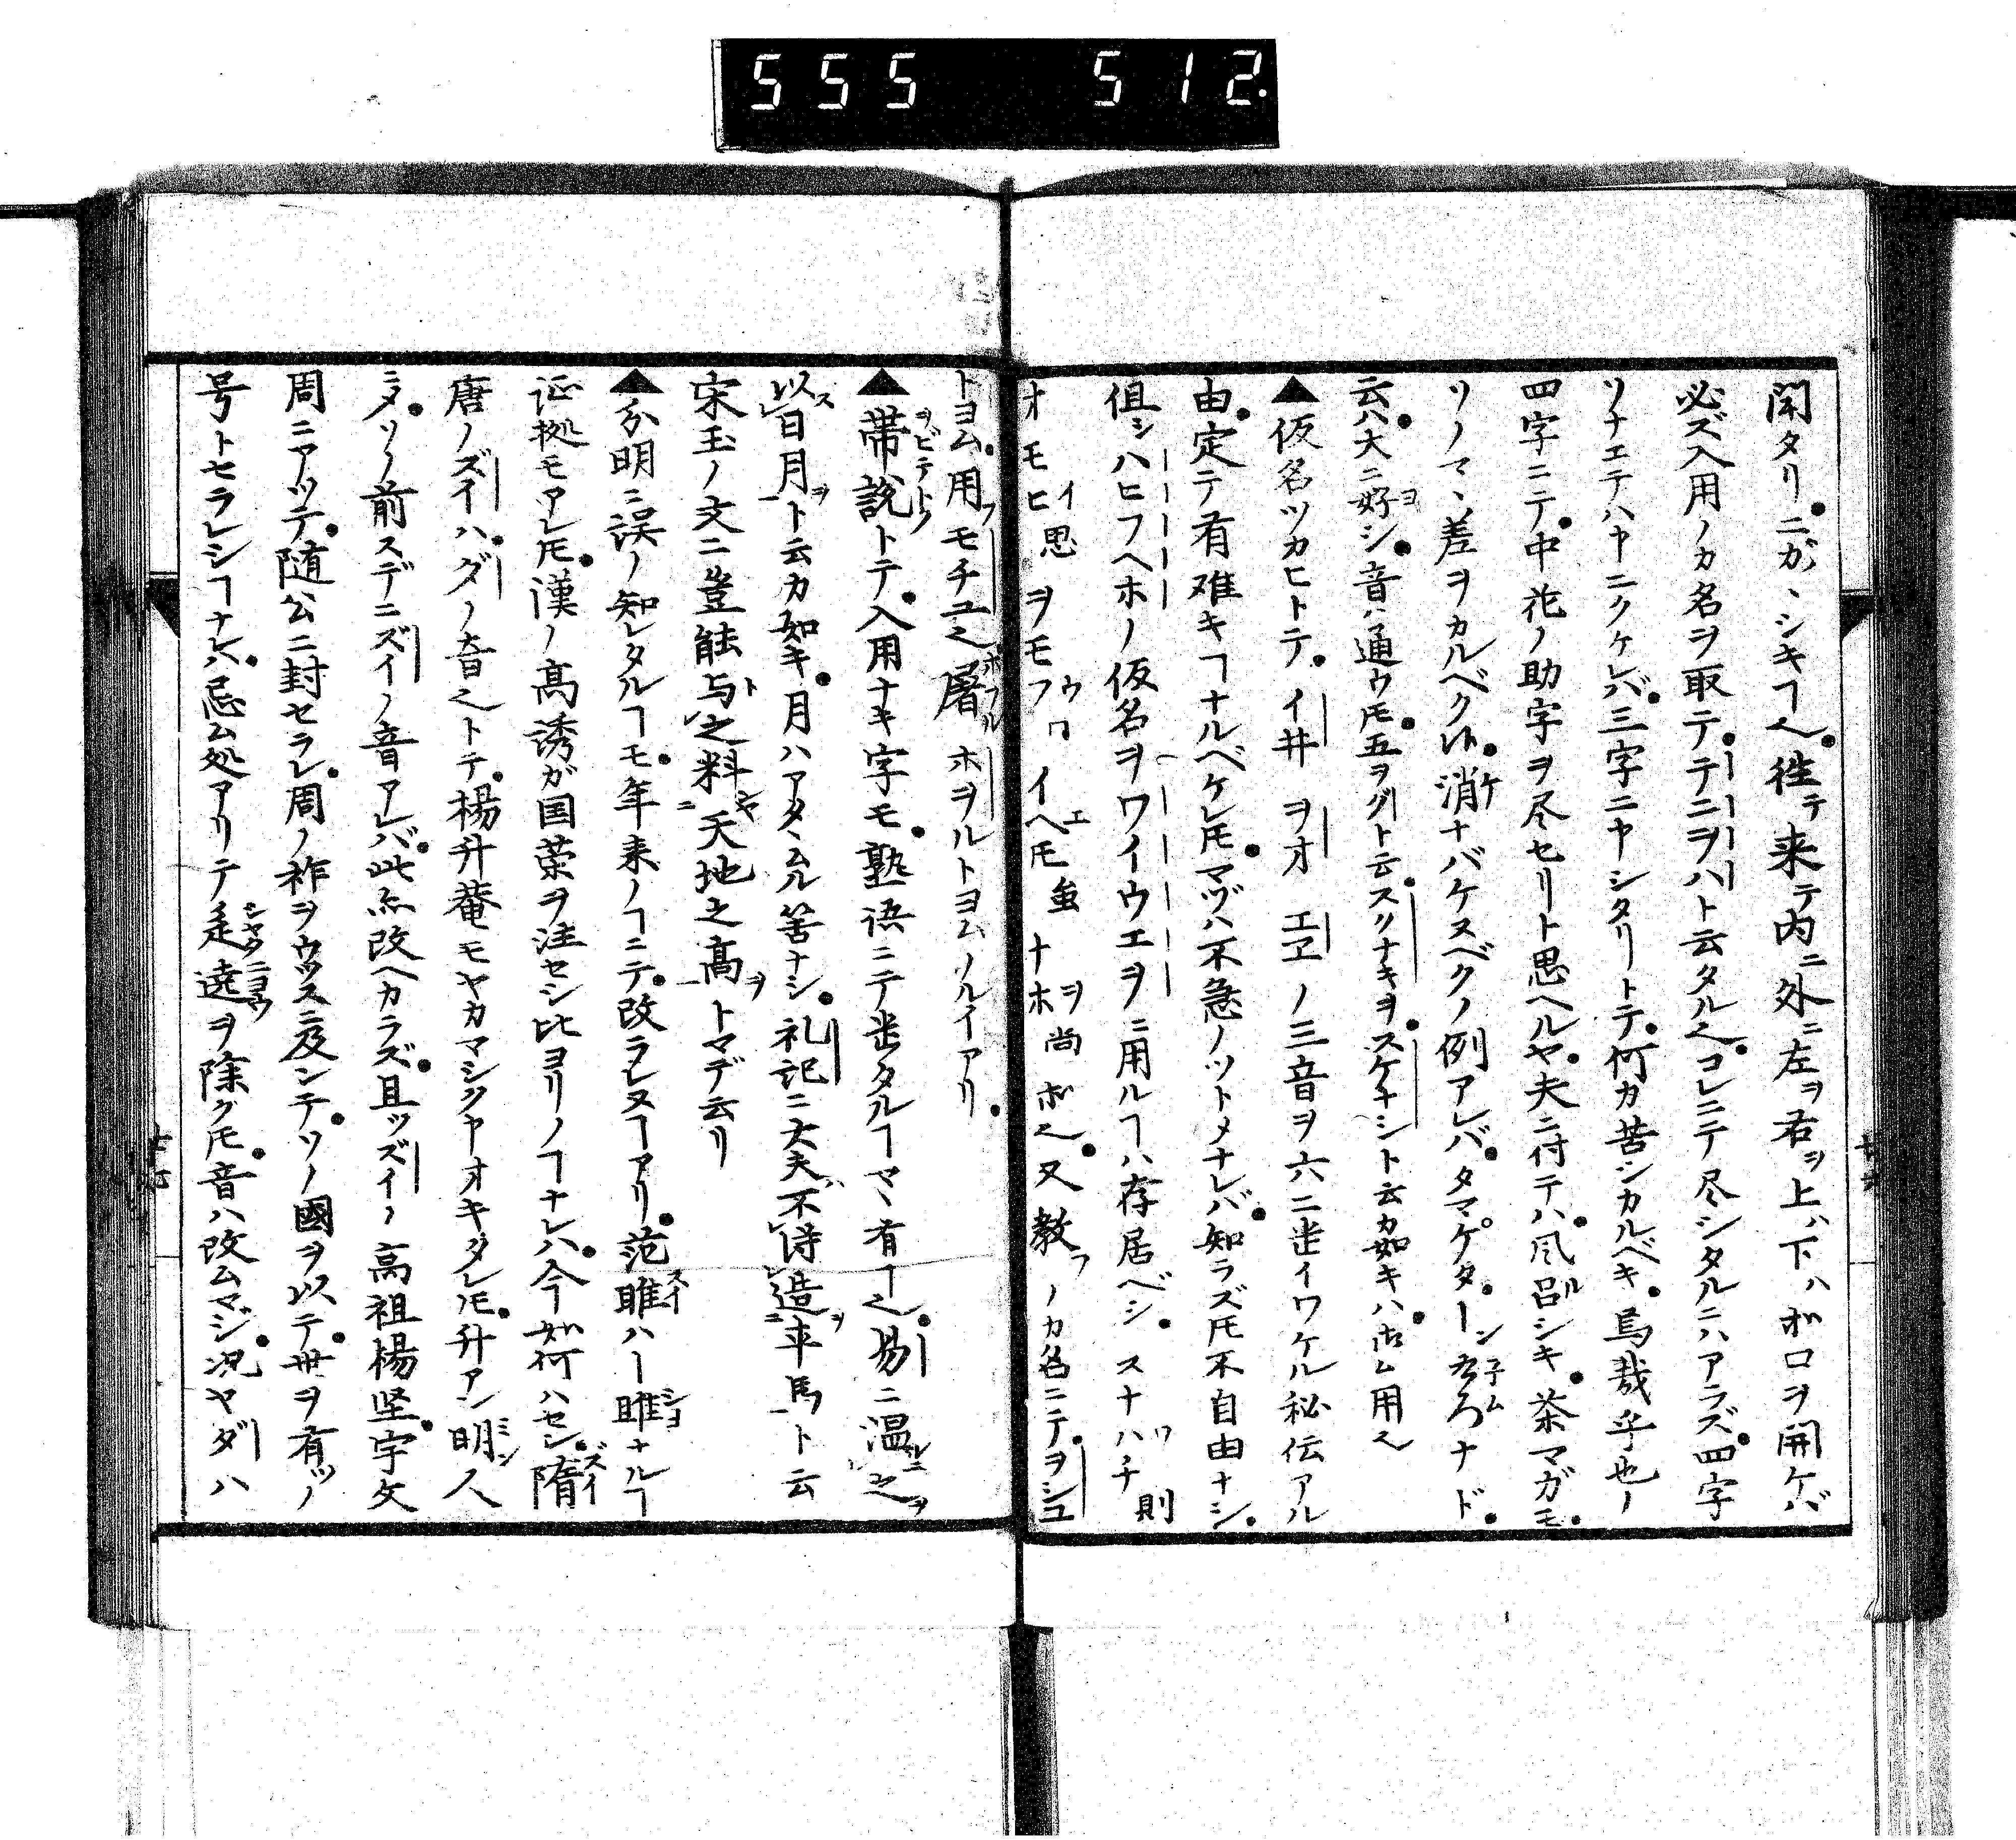 555 512.
開タリ。ニガ〵シキヿ也。往テ来テ内ニ外ニ左ヲ右ヲ上ハ下ハボロヲ開ケバ
必ズ入用ノカ名ヲ取テ。テニヲハト云タル也。コレニテ尽シタルニハアラズ。四字
ツナエテハヤニクケレバ。三字ニヤシタリトテ。何カ苦シカルベキ。焉哉乎也ノ
四字ニテ。中花ノ助字ヲ尽セリト思ヘルヤ。夫ニ付テハ。風呂シキ。茶マガモ。
ソノマヽ差ヲカルベクハ。消ナバケヌベクノ例アレバ。タマゲタ。ナド。
云ハ大ニ好シ。音ハ通ウ𪜈。五ヲグト云。スクナキヲ。スケナシト云カ如キハ。用也
▲仮名ツカヒトテ。イ井 ヲオ エヱノ三音ヲ六ニ書イワケル秘伝アル
由。定テ有难キヿナルベケレ𪜈。マヅハ不急ノツトメナレバ。知ラズ𪜈不自由ナシ。
但シハヒフヘホノ仮名ヲワイウエヲニ用ルヿハ存居ベシ。スナハチ則
オモヒ思ヲモフ イヘ𪜈虽 ナホ尚ボ也。又教フノカ名ニテ。ヲシユ
トヨム。用フモチユ也 屠ホフルホヲルトヨムノルイアリ。
▲帯說トテ。入用ナキ字モ。熟语ニテ出タルヿマヽ有ヿ也。易ニ温之
以日月ト云カ如キ。月ハアタヽムル筈ナシ。礼記ニ大夫不得造車馬ト云
宋玉ノ文ニ豈能与之料天地之高トマデ云リ
▲分明ニ误ノ知レタルヿモ。年来ノヿニテ。改ラレヌヿアリ。范雎ハ雎ナルヿ
证拠モアレ𪜈。漢ノ高誘ガ国策ヲ注セシ比ヨリノヿナレハ。今如何ハセン。隋
唐ノズイハ。ダノ音也トテ。楊升菴モヤカマシクヤオキタレ𪜈。升アン明人
ニタ。ソノ前スデニズイノ音アレバ。此点改ヘカラズ。且ツズイノ高祖楊坚。宇文
周ニアツテ。随公ニ封セラレ。周ノ祚ヲウツスニ及ンテ。ソノ國ヲ以テ。世ヲ有ツノ
号トセラレシヿナレハ。忌ム処アリテ辵遶ヲ除ク𪜈。音ハ改ムマジ。况ヤダハ